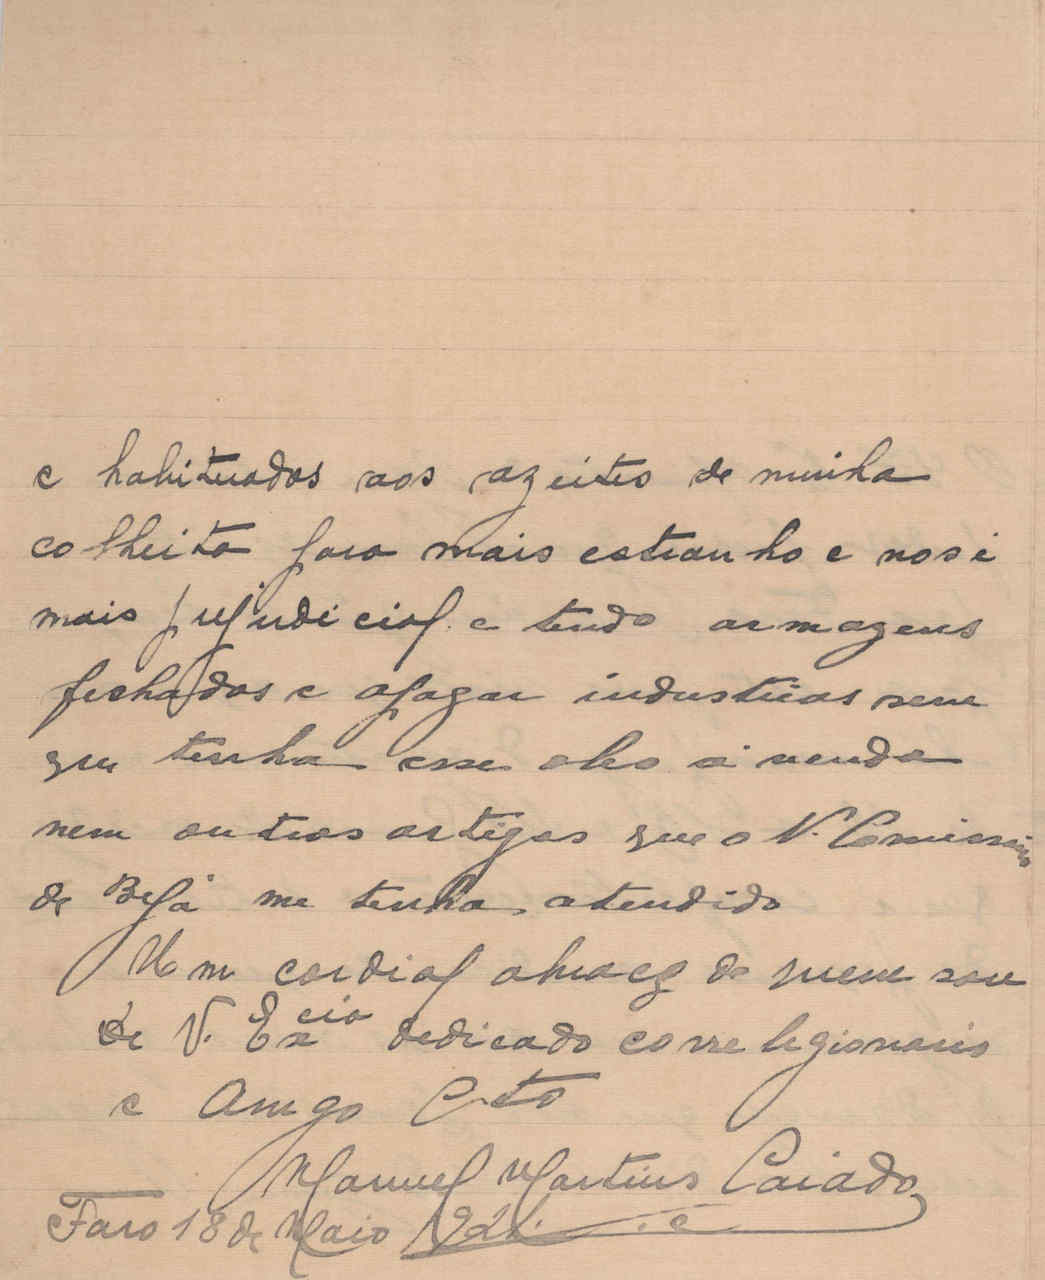 e habituados aos azeites de minha
colheita para mais estranho e nos é
mais prejudicial e tendo armazens
fechados e apagar industrias sem
que tenha esse oleo á venda
nem outros artigos que o N.
de Beja me tenha atendido
Um cordial abraço de quem sou
de V. Excia dedicado correlegionario
e Amgo Cto
Manuel Martins Caiado
Faro 18 de Maio